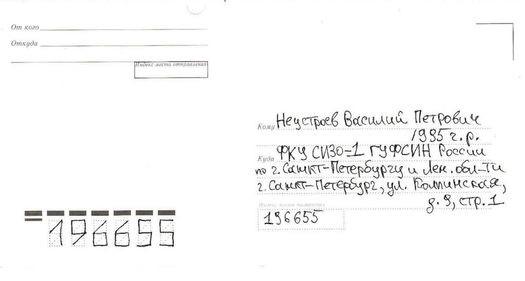 От кого
Откуда
Индекс места отправления
Кому Неустроев Василий Петрович
1995 г.р.
Куда ФКУ СИЗО-1 ГУФСИН России
по г. Санкт-Петербургу и Лен. обл-ти
г. Санкт-Петербург, ул. Колпинская,
д. 9, стр. 1
Индекс места назначения
196655
196655